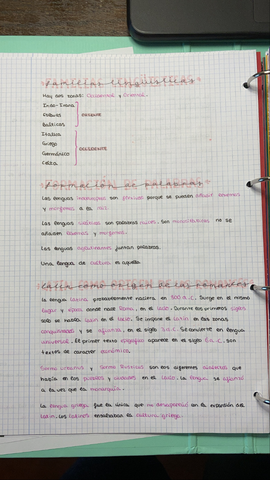 Familias lingüísticas
Hay dos zonas: Occidental y Oriental.
Indo-Irania
Eslavas
Bálticas
ORIENTE
Itálica
Griego
Germánico
Celta
OCCIDENTE
Formación de palabras
Las lenguas son porque se pueden añadir lexemas
y morfemas a la raíz.
Las lenguas son palabras. Son no se
añaden lexemas y morfemas.
Las lenguas aglutinantes juntan palabras.
Una lengua de cultura es aquella
Latín como origen de las romances
La lengua latina probablemente naciera en 800 a.C. Surge en el mismo
lugar y época donde nace Roma, en el Lacio. Durante los primeros siglos
solo se habla latín en el Lacio. Se impone el latín en las zonas
conquistadas y se afianza, en el siglo a.C. Se convierte en lengua
universal. El primer texto aparece en el siglo a.C. son
textos de carácter
Sermo urbanus y Sermo rusticus son las diferentes que
había en los pueblos y en el Lacio. La lengua se
a la vez que la
La lengua griega fue la única que no desapareció con la expansión del
latín. Los latinos la cultura griega.